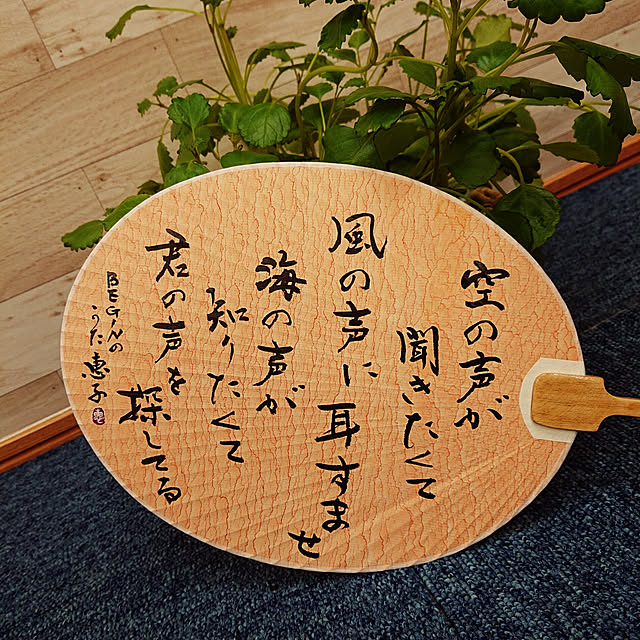 空の声が
聞きたくて
風の声に耳すませ
海の声が
知りたくて
君の声を探してる
BEGINの
うた 恵子